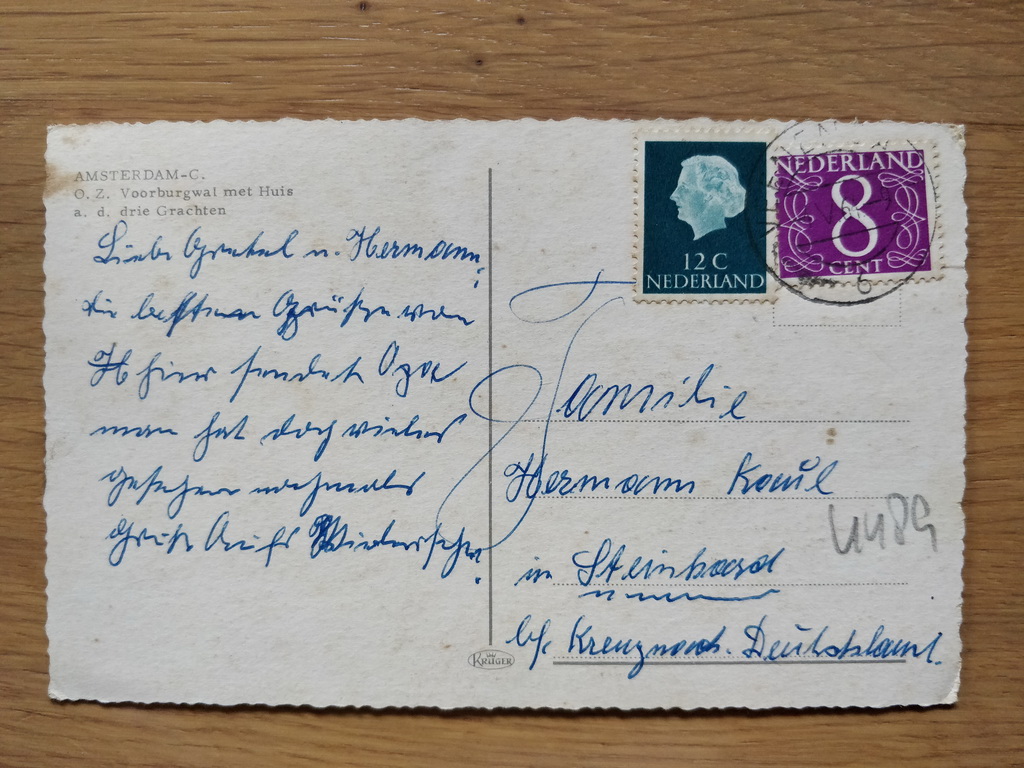 AMSTERDAM-C.
O. Z. Voorburgwal met Huis
a. d. drie Grachten
Liebe Gretel u. Hermann,
die besten Grüße von
hier sendet Opa
man hat doch vieles
gesehen nochmals
Gruß Aufs Wiedersehn
NEDERLAND
8
CENT
12 C
NEDERLAND
6
Familie
Hermann Kaul
in Steinhard
b/. Kreuznach. Deutschland.
4489
KRÜGER